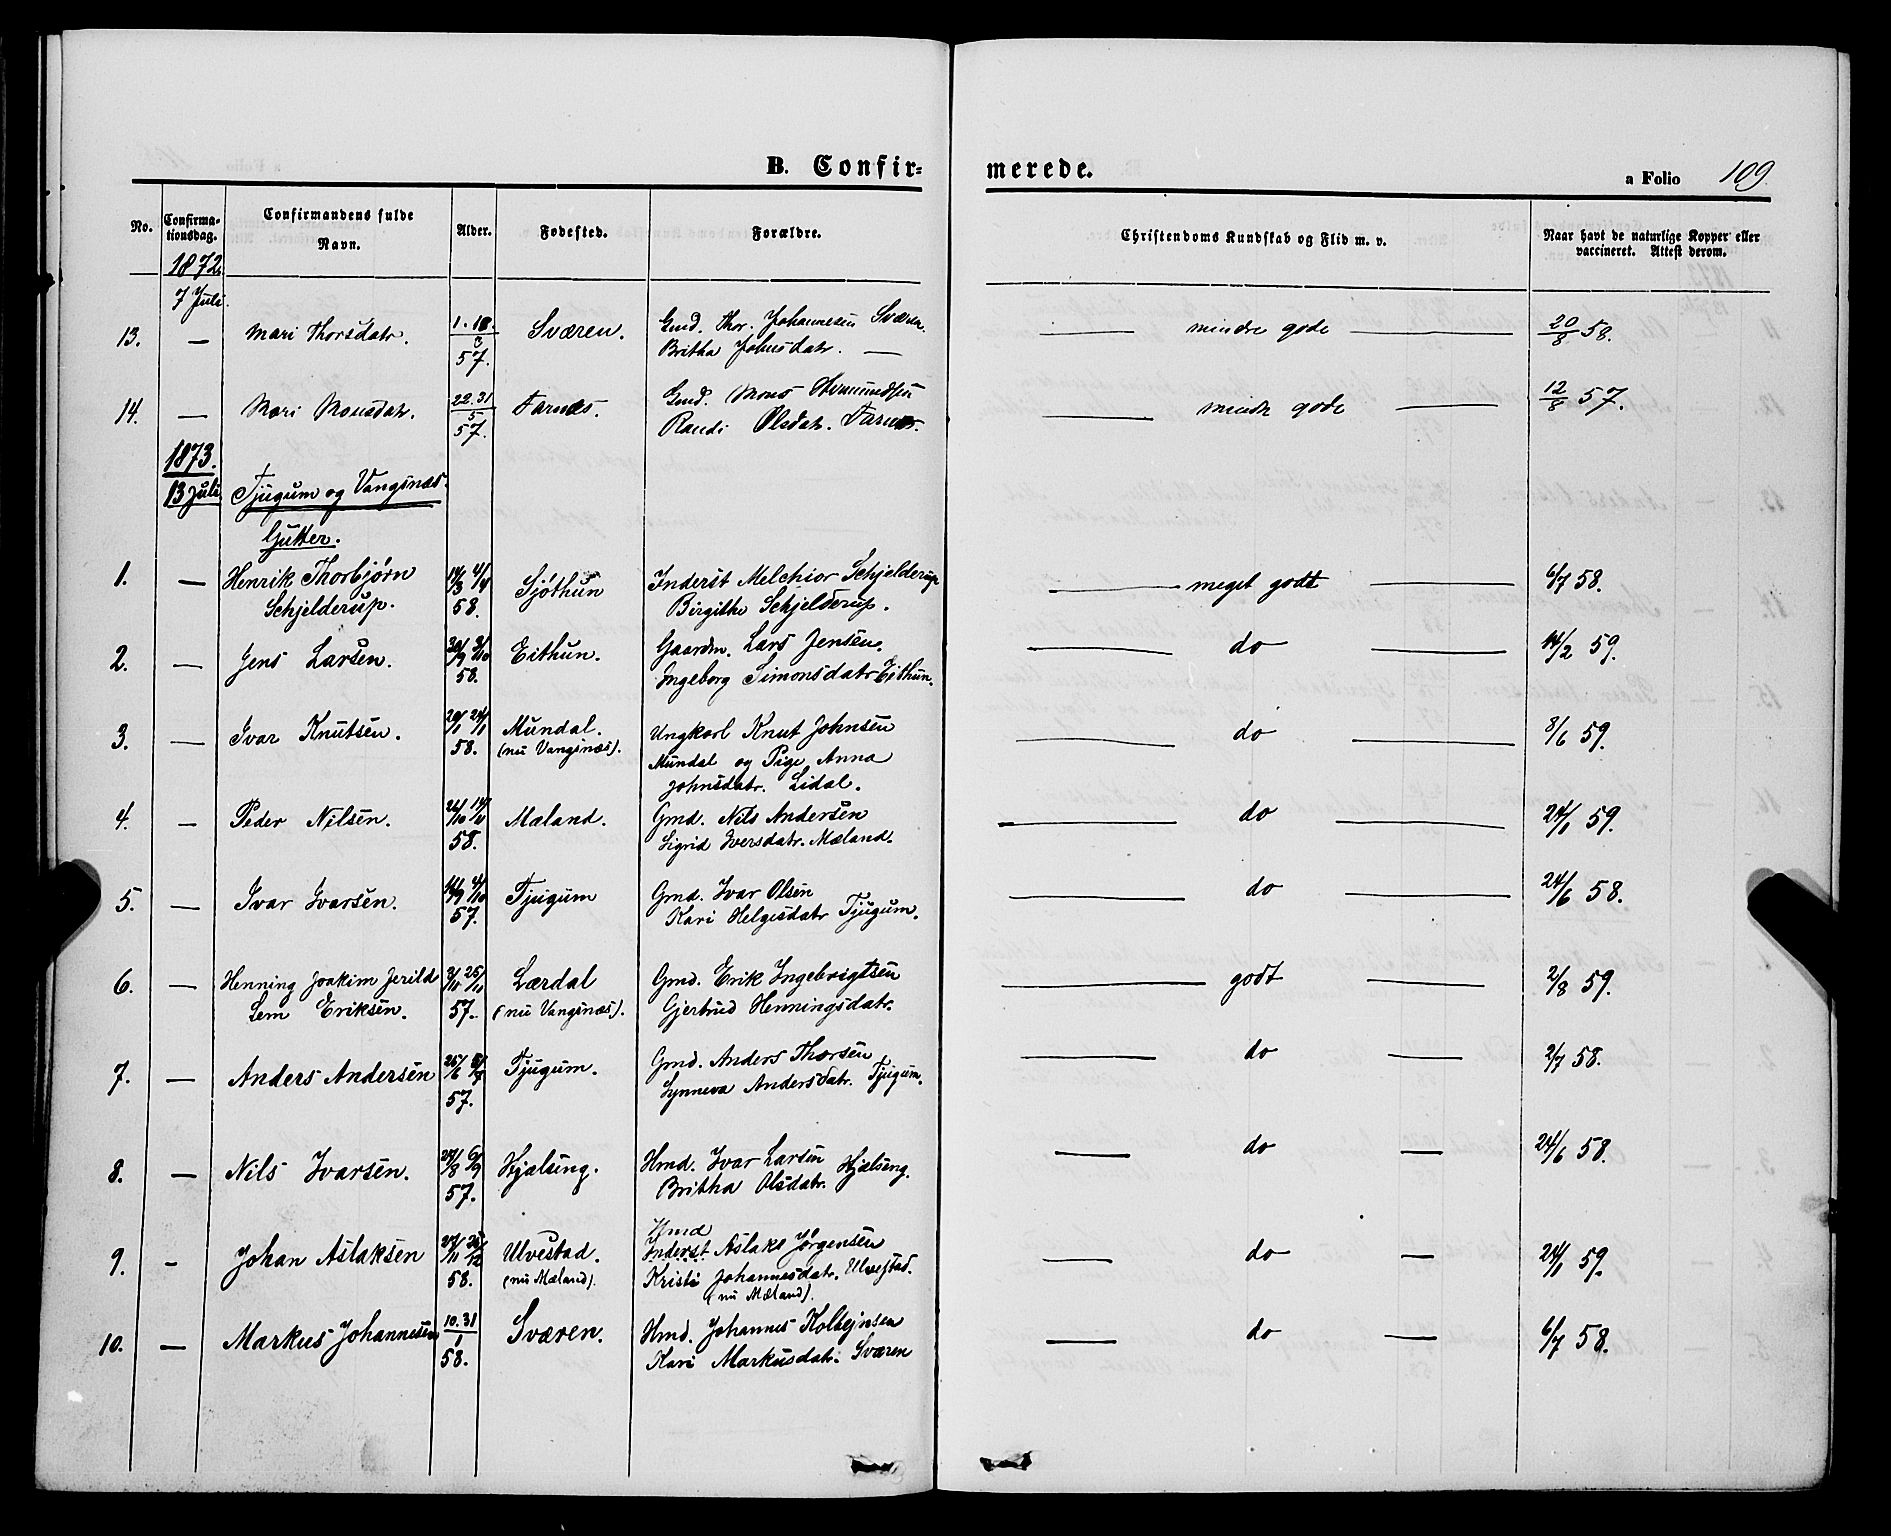 B. Confir-merede.
a Folio 109.
No. Confirmationsdag. Confirmandens fulde Navn. Alder. Fødested. Forældre. Christendoms Kundskab og Flid m. v. Naar havt de naturlige Kopper eller vaccineret. Attest derom.
1872.
7 Juli.
13. — Mari Thorsdatr. 57. Sværen. Gmd. Thor Johannesen Sværen. — mindre gode — 20/8 58.
Britha Johnsdatr. —
14. — Mari Monsdatr. 22.31/5 57. Farnæs. Gmd. Mons — mindre gode — 12/8 57.
Randi Olsdatr. Farnæs.
1873.
13 Juli Tjugum og Vangsnæs.
Gutter.
1. — Henrik Thorbjørn 58. Sjøthun Inderst Melchior Schjelderup — meget godt — 6/7 58.
Schjelderup. Birgithe Schjelderup.
2. — Jens Larsen. 58. Eithun. Gaardm. Lars Jensen. — do — 14/2 59.
Ingeborg Simonsdatr Eithun.
3. — Ivar Knutsen. 58. Mundal. Ungkarl Knut Johnsen — do — 8/6 59.
(nu Vangsnæs). Mundal og Pige Anna
Johnsdatr. Lidal.
4. — Peder Nilsen. 58. Mæland. Gmd. Nils Andersen — do — 24/1 59.
Sigrid Iversdatr. Mæland.
5. — Ivar Ivarsen. 14/9 4/10 57. Tjugum Gmd. Ivar Olsen — do — 24/6 58.
Kari Helgesdatr Tjugum.
6. — Henning Joakim Jerild 3/10 25/10 57. Lærdal Gmd. Erik Ingebrigtsen — godt — 2/8 59.
Lem Eriksen. (nu Vangsnæs). Gjertrud Henningsdatr.
7. — Anders Andersen 57. Tjugum. Gmd. Anders Thorsen — do — 2/7 58.
Synneva Andersdatr. Tjugum.
8. — Nils Ivarsen. 24/8 6/9 57. Hjælseng. Hmd. Ivar Larsen Hjelseng. — do — 24/6 58.
Britha Olsdatr.
Hmd
9. - Johan Aslaksen 58. Ulvestad. Inderst. Aslak Jørgensen — do — 24/1 59.
(nu Mæland). Kristi Johannesdatr. Ulvestad.
(nu Mæland).
10. — Markus Johannesen 10.31/1 58. Sværen. Hmd. Johannes Kolbejnsen — do — 6/7 58.
Kari Markusdatr. Sværen